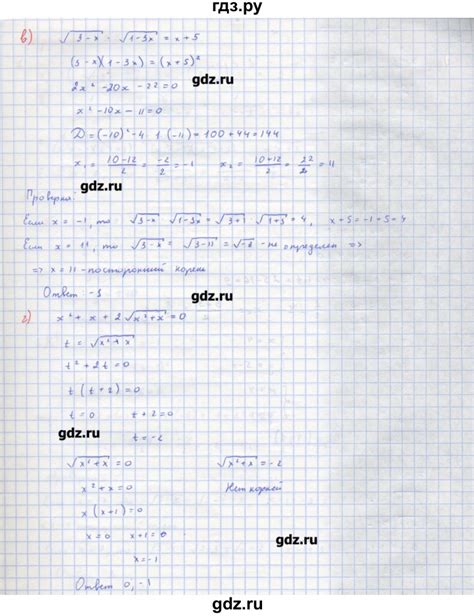 гдз.ру
в) √3-x · √1-3x = x+5
(3-x)(1-3x) = (x+5)²
gdz.ru
2x²-20x-22=0
x²-10x-11=0
D=(-10)²-4·1·(-11)=100+44=144
x₁ = (10-12)/2 = -2/2 = -1 x₂ = (10+12)/2 = 22/2 = 11
gdz.ru
Проверка:
Если x = -1, то √3-x √1-3x = √3+1 √1+3 = 4, x+5=-1+5=4
Если x = 11, то √3-x = √3-11 = √-8 - не определен =>
=> x=11 - посторонний корень
gdz.ru
Ответ -1
г) x²+x+2√x²+x=0
t=√x²+x
gdz.ru
t²+2t=0
t(t+2)=0
t=0 t+2=0
gdz.ru
t=-2
√x²+x=0 √x²+x=-2
gdz.ru
x²+x=0 Нет корней
x(x+1)=0
gdz.ru
x=0 x+1=0
x=-1
Ответ 0, -1
gdz.ru